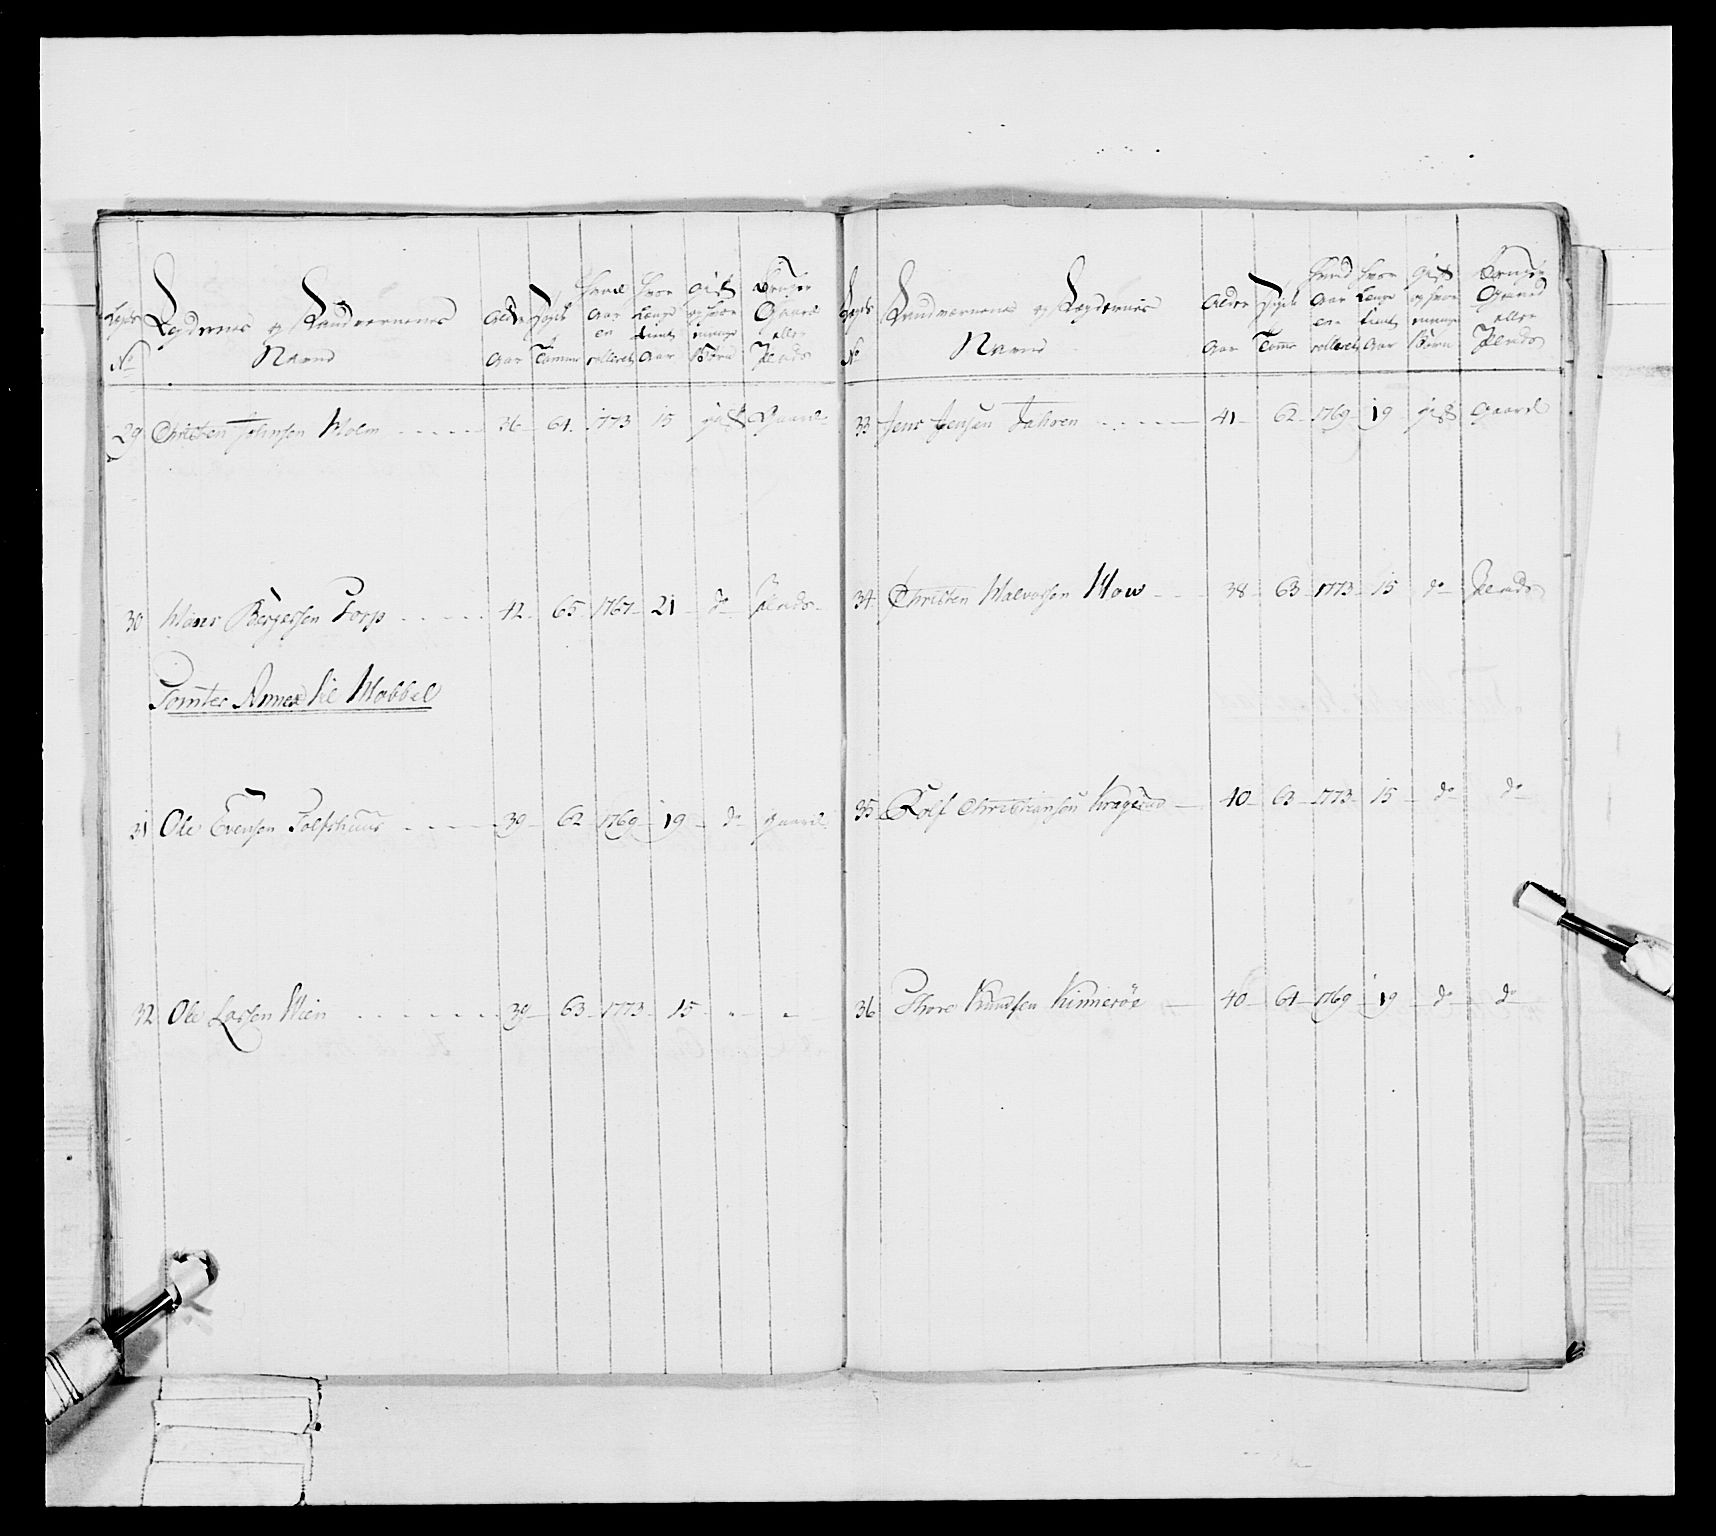 Legds
No
Legdernes og Landværnenes
Navne
Alder
Aar
Høyde
Tomme
Hvad
Aar
en
rolleret
Hvor
Længe
tient
Aar
gift
og hvor
mange
Børn
Bruger
Gaard
eller
Plads
29 Christen Johnsen Holm 36 64 1773 15 gift Gaard
30 Hans Børgersen Torp 42 65 1767 21 do Plads
Tomter Annex til Habbel
31 Ole Evensen Tolfshuus 39 62 1769 19 do gaard
32 Ole Larsen Wien 39 63 1773 15 " "
Legds
No
Landværnenes og Legdernes
Navne
Alder
Aar
Høyde
Tomme
Hvad
Aar
en
rolleret
Hvor
Længe
tient
Aar
gift
og hvor
mange
Børn
Bruger
Gaard
eller
Plads
33 Jens Jensen Fahren 41 62 1769 19 gift Gaard
34 Christen Halvorsen How 38 63 1773 15 do Plads
35 Rolf Christiansen Kragerud 40 63 1773 15 do do
36 Thore Knudsen Kinnerøe 40 61 1769 19 do do